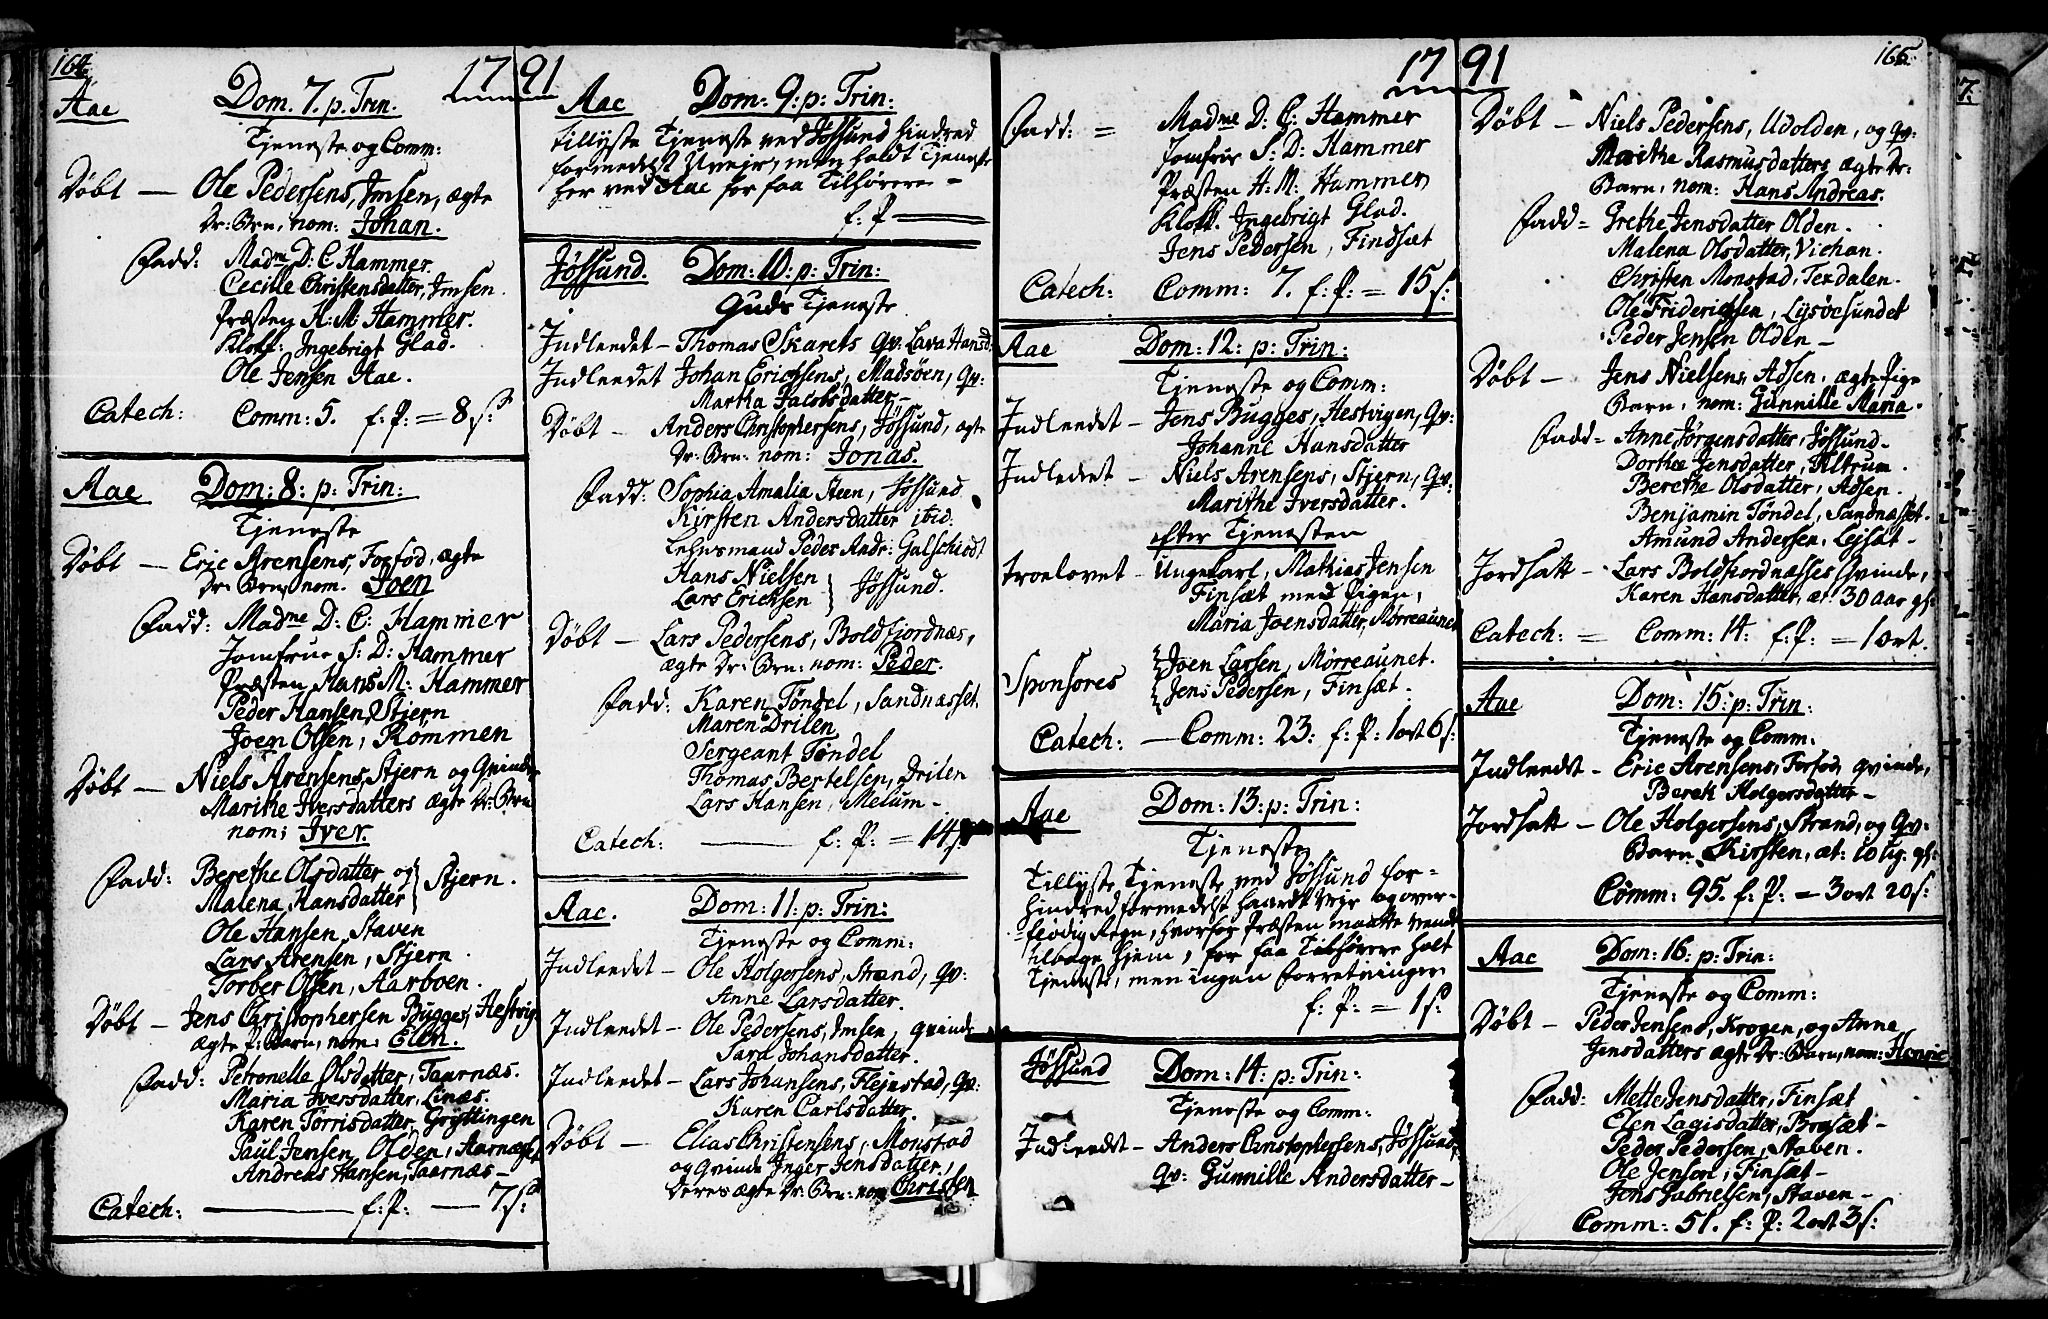 164.
1791
Aae Dom. 7. p. Trin.
Tjeneste og Comm:
Døbt — Ole Pedersens, Imsen, ægte
Dr: Brn, nom: Johan.
Fadd: Madme D: C Hammer.
Cecille Christensdatter, Imsen.
Præsten H: M: Hammer.
Klokk: Ingebrigt Glad.
Ole Jensen Aae.
Catech: Comm: 5. f: P: = 8 s:
Aae Dom: 8: p: Trin:
Tjeneste
Døbt — Eric Arensens, Forfod, ægte
Dr: Brn, nom. Joen
Fadd: Madme D: C: Hammer
Jomfrue S: D: Hammer
Præsten Hans M: Hammer
Peder Hansen, Stjern
Joen Olsen, Rømmen
Døbt — Niels Arensens, Stjern og Qvinde
Marithe Iversdatters ægte Dr: Brn
nom: Iver.
Fadd: Berethe Olsdatter og
Malena Hansdatter } Stjern.
Ole Hansen, Staven
Lars Arensen, Stjern.
Torber Olsen, Aarboen.
Døbt — Jens Christophersen Bugges, Hestvig.
ægte P: Barn, nom: Elen.
Fadd: Petronelle Olsdatter, Taarnæs.
Maria Iversdatter, Linæs.
Karen Torrisdatter, Gryttingen
Paul Jensen, Olden, Aarnæset
Andreas Hansen, Taarnæs —
Catech: — f: P: — 7 s:
Aae Dom: 9: p: Trin:
tillyste Tjeneste ved Jøssund hindred
formedelst Uveir, men holdt Tjeneste
her ved Aae for faa Tilhørere —
f: P —
Jøssund. Dom: 10: p: Trin:
Guds Tjeneste
Indleedet — Thomas Skarets Qv: Lava Hansd:
Indleedet Johan Erichsens, Madsøen, Qv:
Martha Jacobsdatter —
Døbt — Anders Christophersens, Jøssund, ægte
Dr: Brn: nom: Jonas.
Fadd: Sophia Amalia Steen, Jøssund
Kirsten Andersdatter ibid:
Lehnsmand Peder Andr: Galschiødt
Hans Nielsen
Lars Erichsen } Jøssund.
Døbt — Lars Pedersens, Boldfjordnæs,
ægte Dr: Brn: nom: Peder.
Fadd: Karen Tøndel, Sandnæsset.
Maren Drilen
Sergeant Tøndel
Thomas Bertelsen, Drilen
Lars Hansen, Melum —
Catech: — f: P: = 14 s
Aae. Dom: 11: p: Trin:
Tjeneste og Comm:
Indleedet — Ole Holgersens, Strand, Qv:
Anne Larsdatter.
Indleedet — Ole Pedersens, Imsen, Qvinde
Sara Johansdatter.
Indleedet — Lars Johansens, Flejnstad, Qv:
Karen Carlsdatter.
Døbt — Elias Christensens, Monstad
og Qvinde Inger Jensdatter,
deres ægte Dr: Brn: nom Christen
165.
1791
Fadd: = Madme D: C: Hammer
Jomfrue S: D: Hammer
Præsten H: M: Hammer
Klokk. Ingebrigt Glad.
Jens Pedersen, Findsæt
Catech: Comm: 7. f: P: = 15 s:
Aae Dom: 12: p: Trin:
Tjeneste og Comm:
Indleedet — Jens Bugges, Hestvigen, Qv:
Johanne Hansdatter
Indledet — Niels Arensens, Stjern, Qv:
Marithe Iversdatter.
efter Tjenesten
troelovet — Ungekarl, Mathias Jensen
Finsæt med Pigen,
Maria Joensdatter, Mørreaunet
Sponsores { Joen Larsen, Mørreaunet.
Jens Pedersen, Finsæt.
Catech: — Comm: 23. f: P: 1 ort 6 s:
Aae Dom: 13: p: Trin:
Tjeneste
Tillyste Tjeneste ved Jøssund for-
hindred formedelst haardt Veir og over-
flødig Regn, hvorfor Præsten maatte vende
tilbage hjem, for faa Tilhørere holt
Tjeneste, men ingen Forretninger
f: P: = 1 s:
Jøssund Dom: 14: p: Trin:
Tjeneste og Comm:
Indleedet — Anders Christophersens, Jøssund,
Qv: Gunnille Andersdatter —
Døbt — Niels Pedersens, Udolden, og Qv:
Marithe Rasmusdatters ægte Dr:
Barn, nom: Hans Andreas.
Fadd = Grethe Jensdatter Olden.
Malena Olsdatter, Vichan.
Christen Monstad, Texdalen.
Ole Friderichsen, Lysøesundet
Peder Jensen Olden —
Døbt — Jens Nielsens, Adsen, ægte Pige
Barn, nom: Gunnille Maria.
Fadd = Anne Jørgensdatter, Jøssund —
Dorthe Jensdatter, Altrum.
Berethe Olsdatter, Adsen.
Benjamin Tøndel, Sandnæsset.
Amund Andersen, Lejsæt —
Jordsatt — Lars Boldfiordnæsses Qvinde,
Karen Hansdatter, æt: 30 aar gl:
Catech: = Comm: 14: f: P: = 1 ort.
Aae Dom: 15: p: Trin:
Tjeneste og Comm:
Indleedet — Eric Arensens, Forfod, Qvinde,
Beret Holgersdatter —
Jordsatt — Ole Holgersens, Strand, og Qv:
Barn Kirsten, æt: 10 ug: gl:
Comm: 95. f: P: = 3 ort 20 s:
Aae Dom: 16: p: Trin:
Tjeneste og Comm:
Døbt — Peder Jensens, Krogen, og Anne
Jensdatters ægte Dr: Barn, nom: Henric
Fadd: Mette Jensdatter, Finsæt
Elen Lagisdatter, Bresæt —
Peder Pedersen, Staven.
Ole Jensen, Finsæt —
Jens Gabrielsen, Staven —
Comm: 51. f: P: 2 ort 3 s: